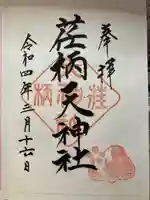 奉拝
荏柄天神社
令和四年三月十六日